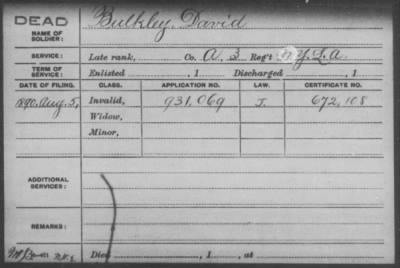 DEAD
NAME OF SOLDIER: Bulkley, David
SERVICE: Late rank, Co. A, 3 Reg't N.Y.L.A.
TERM OF SERVICE: Enlisted , 1 Discharged , 1
DATE OF FILING. CLASS. APPLICATION NO. LAW. CERTIFICATE NO.
1890, Aug. 5, Invalid, 931,069 J. 672,108
Widow,
Minor,
ADDITIONAL SERVICES:
REMARKS:
Died , 1 , at